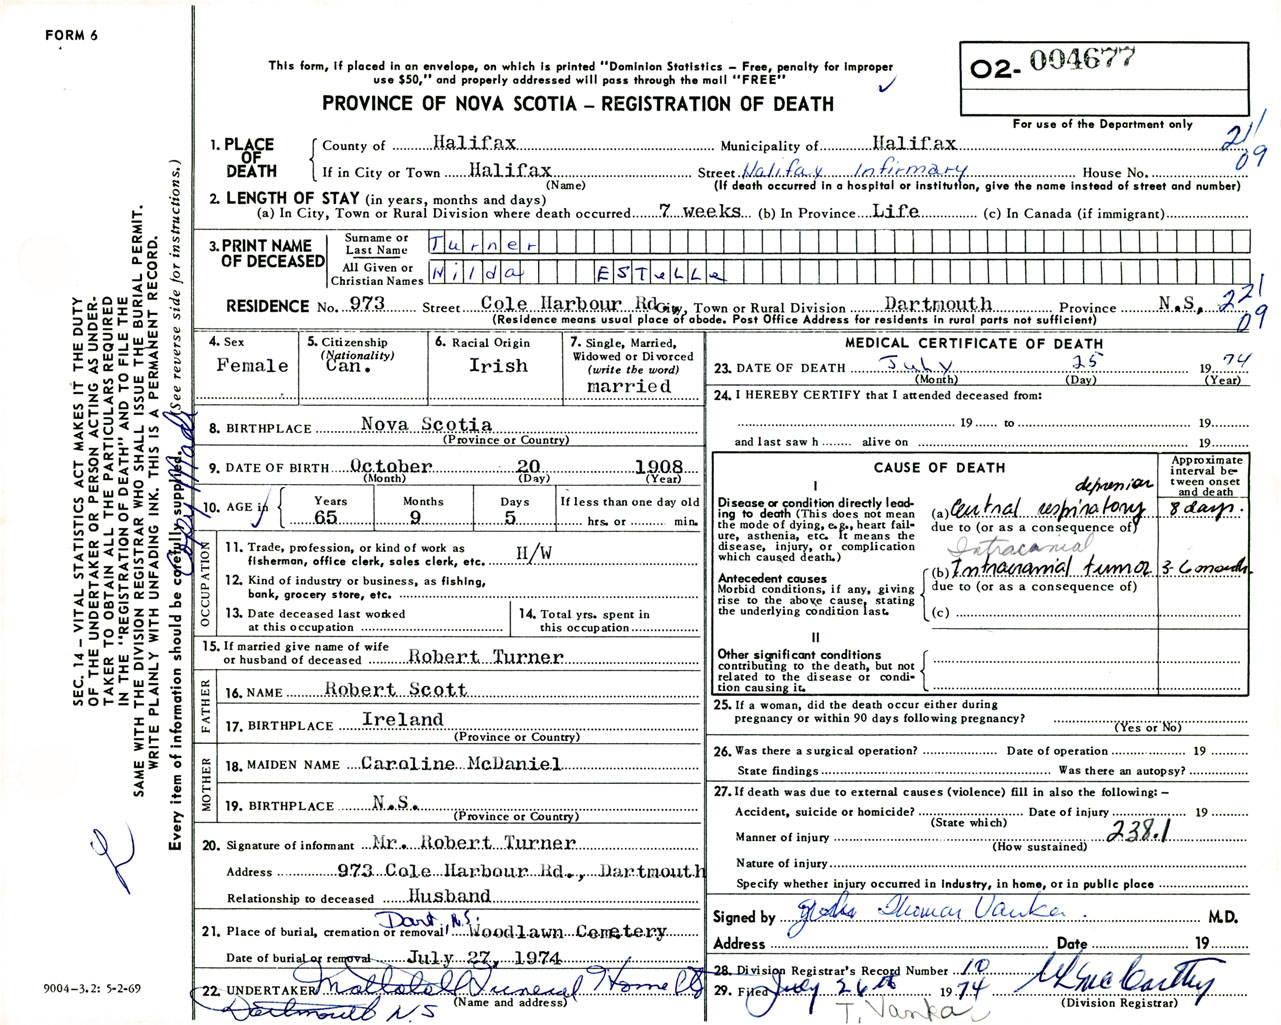 FORM 6
This form, if placed in an envelope, on which is printed "Dominion Statistics – Free, penalty for improper
use $50," and properly addressed will pass through the mail "FREE"
PROVINCE OF NOVA SCOTIA – REGISTRATION OF DEATH
02- 004677
For use of the Department only
21/
09
1. PLACE OF DEATH
County of Halifax Municipality of Halifax
If in City or Town Halifax Street Halifax Infirmary House No.
(Name) (If death occurred in a hospital or institution, give the name instead of street and number)
2. LENGTH OF STAY (in years, months and days)
(a) In City, Town or Rural Division where death occurred 7 weeks (b) In Province Life (c) In Canada (if immigrant)
3. PRINT NAME OF DECEASED
Surname or Last Name Turner
All Given or Christian Names Hilda ESTELLE
RESIDENCE No. 973 Street Cole Harbour Rd. City, Town or Rural Division Dartmouth Province N.S.
(Residence means usual place of abode. Post Office Address for residents in rural parts not sufficient)
221
09
4. Sex
Female
5. Citizenship
(Nationality)
Can.
6. Racial Origin
Irish
7. Single, Married,
Widowed or Divorced
(write the word)
married
8. BIRTHPLACE Nova Scotia
(Province or Country)
9. DATE OF BIRTH October 20 1908
(Month) (Day) (Year)
10. AGE in
Years Months Days If less than one day old
65 9 5 hrs. or min.
OCCUPATION
11. Trade, profession, or kind of work as
fisherman, office clerk, sales clerk, etc. H/W
12. Kind of industry or business, as fishing,
bank, grocery store, etc.
13. Date deceased last worked
at this occupation
14. Total yrs. spent in
this occupation
15. If married give name of wife
or husband of deceased Robert Turner
FATHER
16. NAME Robert Scott
17. BIRTHPLACE Ireland
(Province or Country)
MOTHER
18. MAIDEN NAME Caroline McDaniel
19. BIRTHPLACE N.S.
(Province or Country)
20. Signature of informant Mr. Robert Turner
Address 973 Cole Harbour Rd., Dartmouth
Relationship to deceased Husband
Dart, N.S.
21. Place of burial, cremation or removal Woodlawn Cemetery
Date of burial or removal July 27, 1974
22. UNDERTAKER Mattatall Funeral Home Ltd
(Name and address)
Dartmouth N.S
MEDICAL CERTIFICATE OF DEATH
23. DATE OF DEATH July 25 1974
(Month) (Day) (Year)
24. I HEREBY CERTIFY that I attended deceased from:
19 to 19
and last saw h alive on 19
CAUSE OF DEATH
Approximate interval between onset and death
I
Disease or condition directly leading to death (This does not mean the mode of dying, e.g., heart failure, asthenia, etc. It means the disease, injury, or complication which caused death.)
depression
(a) Central respiratory 8 days.
due to (or as a consequence of)
Intracranial
Antecedent causes
Morbid conditions, if any, giving rise to the above cause, stating the underlying condition last.
(b) Intracranial tumor 3-6 months
due to (or as a consequence of)
(c)
II
Other significant conditions
contributing to the death, but not related to the disease or condition causing it.
25. If a woman, did the death occur either during
pregnancy or within 90 days following pregnancy?
(Yes or No)
26. Was there a surgical operation? Date of operation 19
State findings Was there an autopsy?
27. If death was due to external causes (violence) fill in also the following: –
Accident, suicide or homicide? Date of injury 19
(State which)
Manner of injury 238.1
(How sustained)
Nature of injury
Specify whether injury occurred in industry, in home, or in public place
Signed by Thomas Vanka M.D.
Address Date 19
28. Division Registrar's Record Number 10
29. Filed July 26th 1974
(Division Registrar)
T. Vanka
SEC. 14 – VITAL STATISTICS ACT MAKES IT THE DUTY
OF THE UNDERTAKER OR PERSON ACTING AS UNDER-
TAKER TO OBTAIN ALL THE PARTICULARS REQUIRED
IN THE "REGISTRATION OF DEATH" AND TO FILE THE
SAME WITH THE DIVISION REGISTRAR WHO SHALL ISSUE THE BURIAL PERMIT.
WRITE PLAINLY WITH UNFADING INK. THIS IS A PERMANENT RECORD.
Every item of information should be carefully supplied. (See reverse side for instructions.)
Copy Made
9004-3.2: 5-2-69